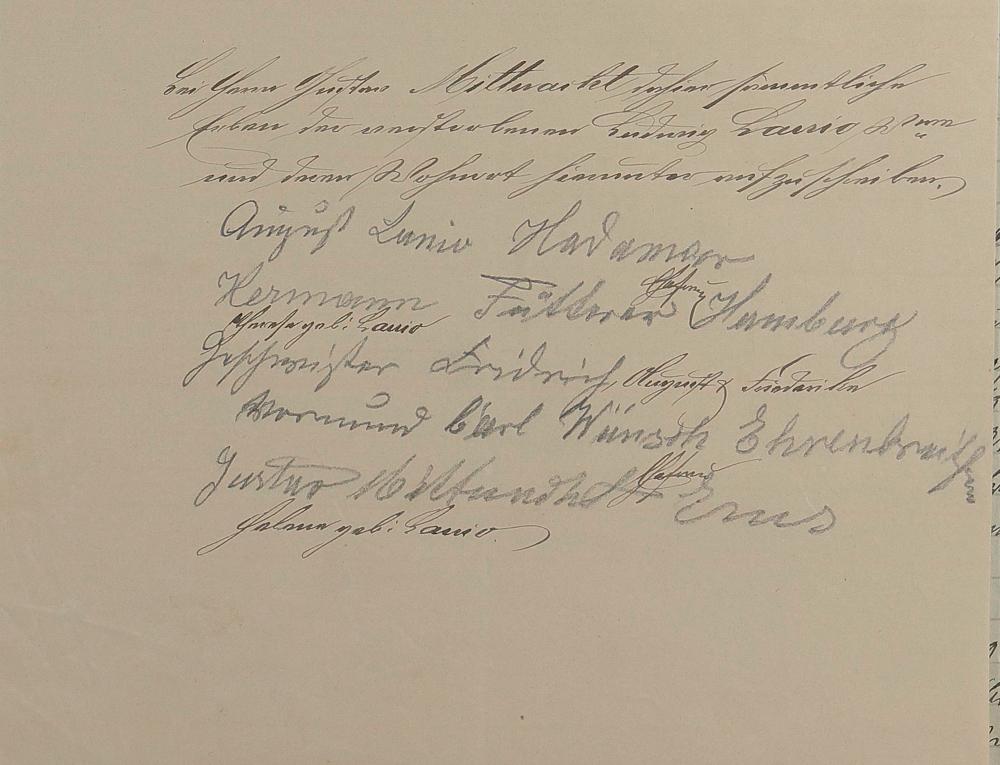 bei Herrn Gustav Mittnacht dahier sämmtliche
Erben der verstorbenen Ludwig Lanio Wwe
und deren Wohnort hierunter aufzuschreiben.
August Lanio Hadamar
Hermann Fütterer Ehefrau Hamburg
Therese geb: Lanio
Geschwister Fridrich, August & Friederike
Vormund Carl Wünsch Ehrenbreitstein
Gustav Mittnacht Ehefrau Ems
Helene geb: Lanio.